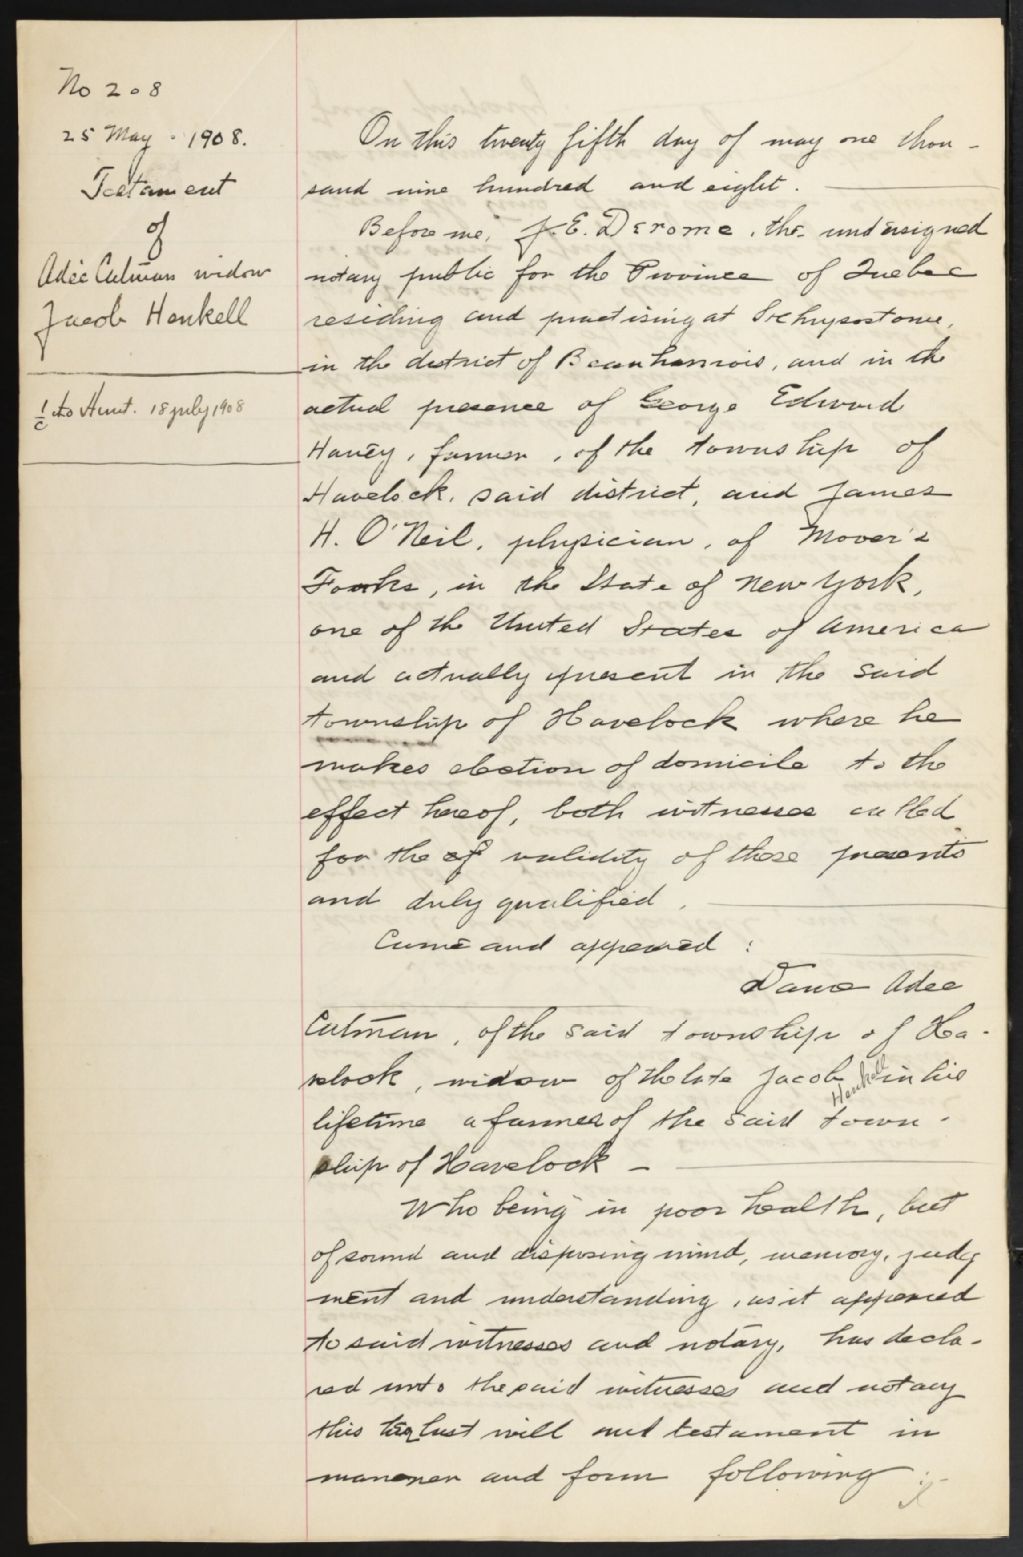 No 208
25 May . 1908.
Testament
of
Adée Culman widow
Jacob Henkell
1/c to Hunt. 18 july 1908
On this twenty fifth day of may one thou-
sand nine hundred and eight.
Before me, J. E. Derome, the undersigned
notary public for the Province of Quebec
residing and practising at St Chrysostome,
in the district of Beauharnois, and in the
actual presence of George Edward
Haney, farmer, of the township of
Havelock, said district, and James
H. O'Neil, physician, of Mover's
Forks, in the State of New York,
one of the United States of America
and actually present in the said
township of Havelock where he
makes election of domicile to the
effect hereof, both witnesses called
for the of validity of these presents
and duly qualified.
Came and appeared :
Dame Adée
Culman, of the said township of Ha-
velock, widow of the late Jacob Henkell in his
lifetime a farmer of the said town-
ship of Havelock -
Who being in poor health, but
of sound and disposing mind, memory, judg
ment and understanding, as it appeared
to said witnesses and notary, has decla-
red unto the said witnesses and notary
this her last will and testament in
manner and form following :-